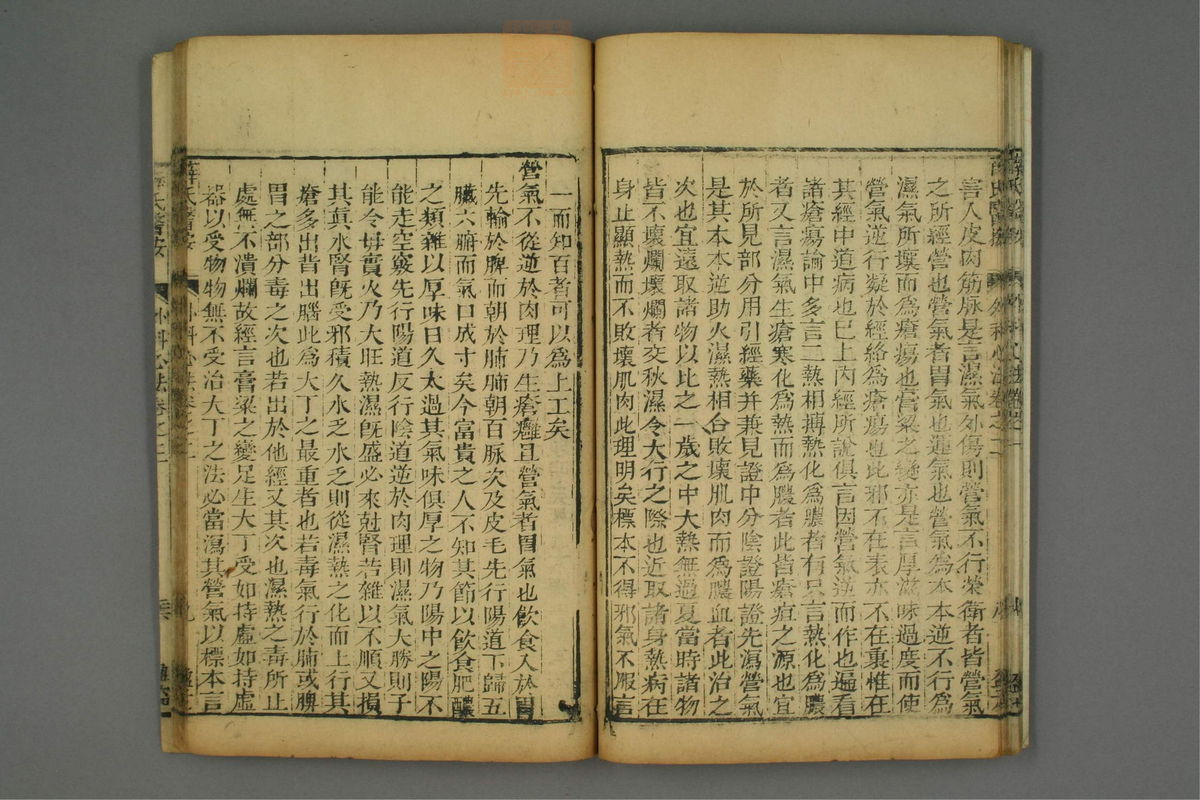 害人皮肉筋脉是言濕氣外傷則營氣不行榮衛者皆營氣
之所經營也營氣者胃氣也運氣也營氣為本本逆不行為
濕氣所壞而為瘡瘍也膏粱之變亦是言厚滋味過度而使
營氣逆行凝於經絡為瘡瘍也此邪不在表亦不在裏惟在
其經中道病也已上內經所說俱言因營氣逆而作也遍看
諸瘡瘍論中多言二熱相搏熱化為膿者有只言熱化為膿
者又言濕氣生瘡寒化為熱而為膿者此皆瘡疽之源也宜
於所見部分用引經藥并兼見證中分陰證陽證先瀉營氣
是其本本逆助火濕熱相合敗壞肌肉而為膿血者此治之
次也宜遠取諸物以比之一歲之中大熱無過夏當時諸物
皆不壞爛壞爛者交秋濕令大行之際也近取諸身熱病在
身止顯熱而不敗壞肌肉此理明矣標本不得邪氣不服言
一而知百者可以為上工矣
營氣不從逆於肉理乃生瘡癰且營氣者胃氣也飲食入於胃
先輸於脾而朝於肺肺朝百脉次及皮毛先行陽道下歸五
臟六腑而氣口成寸矣今富貴之人不知其節以飲食肥醲
之類雜以厚味日久太過其氣味俱厚之物乃陽中之陽不
能走空竅先行陽道反行陰道逆於肉理則濕氣大勝則子
能令母實火乃大旺熱濕既盛必來尅腎若雜以不順又損
其真水腎既受邪積久水乏水乏則從濕熱之化而上行其
瘡多出背出腦此為大丁之最重者也若毒氣行於肺或脾
胃之部分毒之次也若出於他經又其次也濕熱之毒所止
處無不潰爛故經言膏粱之變足生大丁受如持虛如持虛
器以受物物無不受治大丁之法必當瀉其營氣以標本言
薛氏醫按
外科心法卷之二